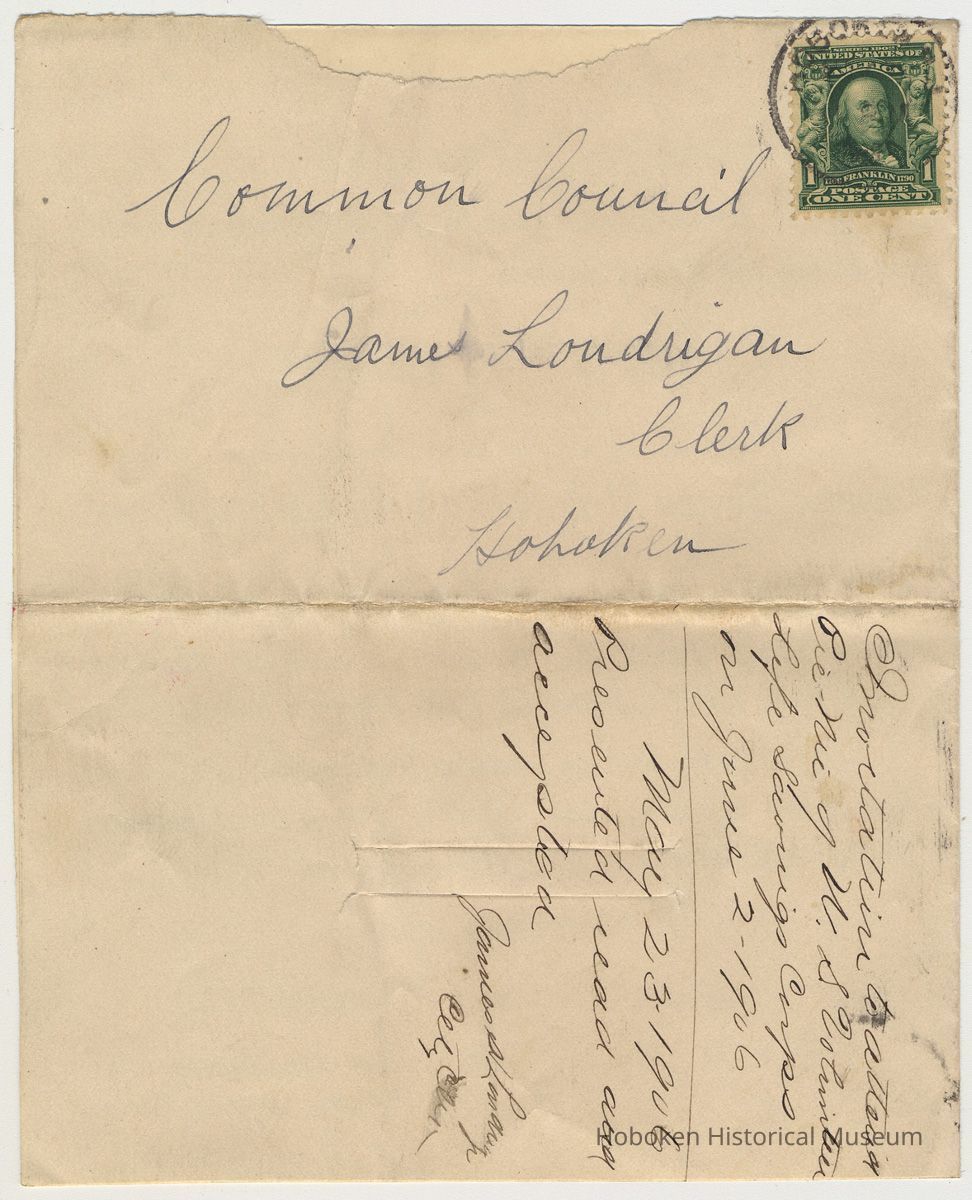 Common Council
James Londrigan
Clerk
Hoboken
SERIES 1902
UNITED STATES OF
AMERICA
FRANKLIN 1790
1 1
POSTAGE
ONE CENT
Invortatiin to attend
Pic-Nic of U. S Volunteer
Life Savings Corps
on June 2-1906
May 23 1906
Presented read and
accepted
James
City Clerk
Hoboken Historical Museum